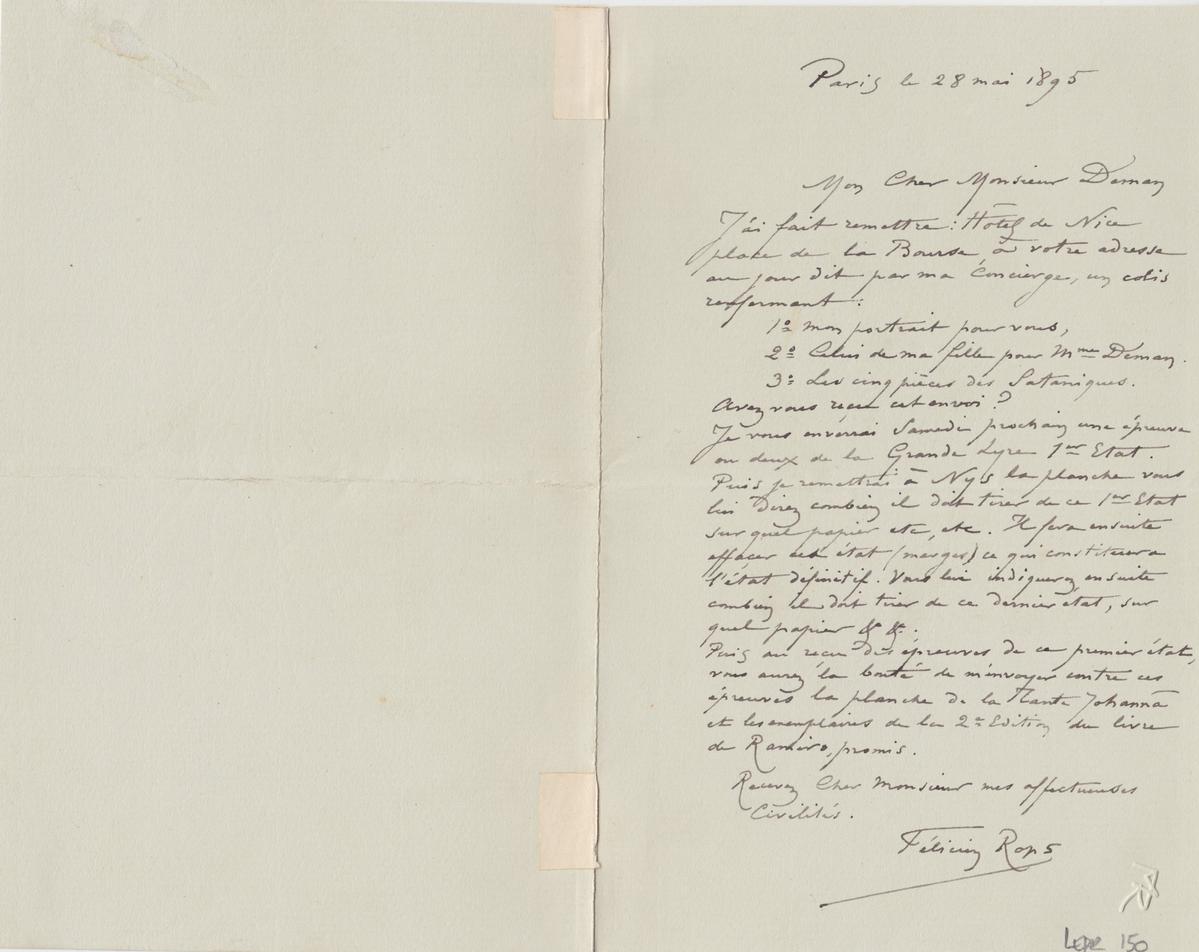 Paris le 28 mai 1895
Mon Cher Monsieur Deman
J'ai fait remettre : Hôtel de Nice
place de la Bourse, à votre adresse
au jour dit par ma Concierge, un colis
renfermant :
1º mon portrait pour vous,
2º Celui de ma fille pour Mme Deman.
3º Les cinq pièces des Sataniques.
Avez vous reçu cet envoi ?
Je vous enverrai Samedi prochain une épreuve
ou deux de la Grande Lyre 1er Etat.
Puis je remettrai à Nys la planche vous
lui direz combien il doit tirer de ce 1er Etat
sur quel papier etc, etc. Il fera ensuite
effacer cet état (marges) ce qui constituera
l'état définitif. Vous lui indiquerez ensuite
combien il doit tirer de ce dernier état, sur
quel papier & &.
Puis au reçu des épreuves de ce premier état,
vous aurez la bonté de m'envoyer contre ces
épreuves la planche de la Tante Johanna
et les exemplaires de la 2e Edition du livre
de Ramiro, promis.
Recevez Cher Monsieur mes affectueuses
Civilités.
Félicien Rops
LEpr 150